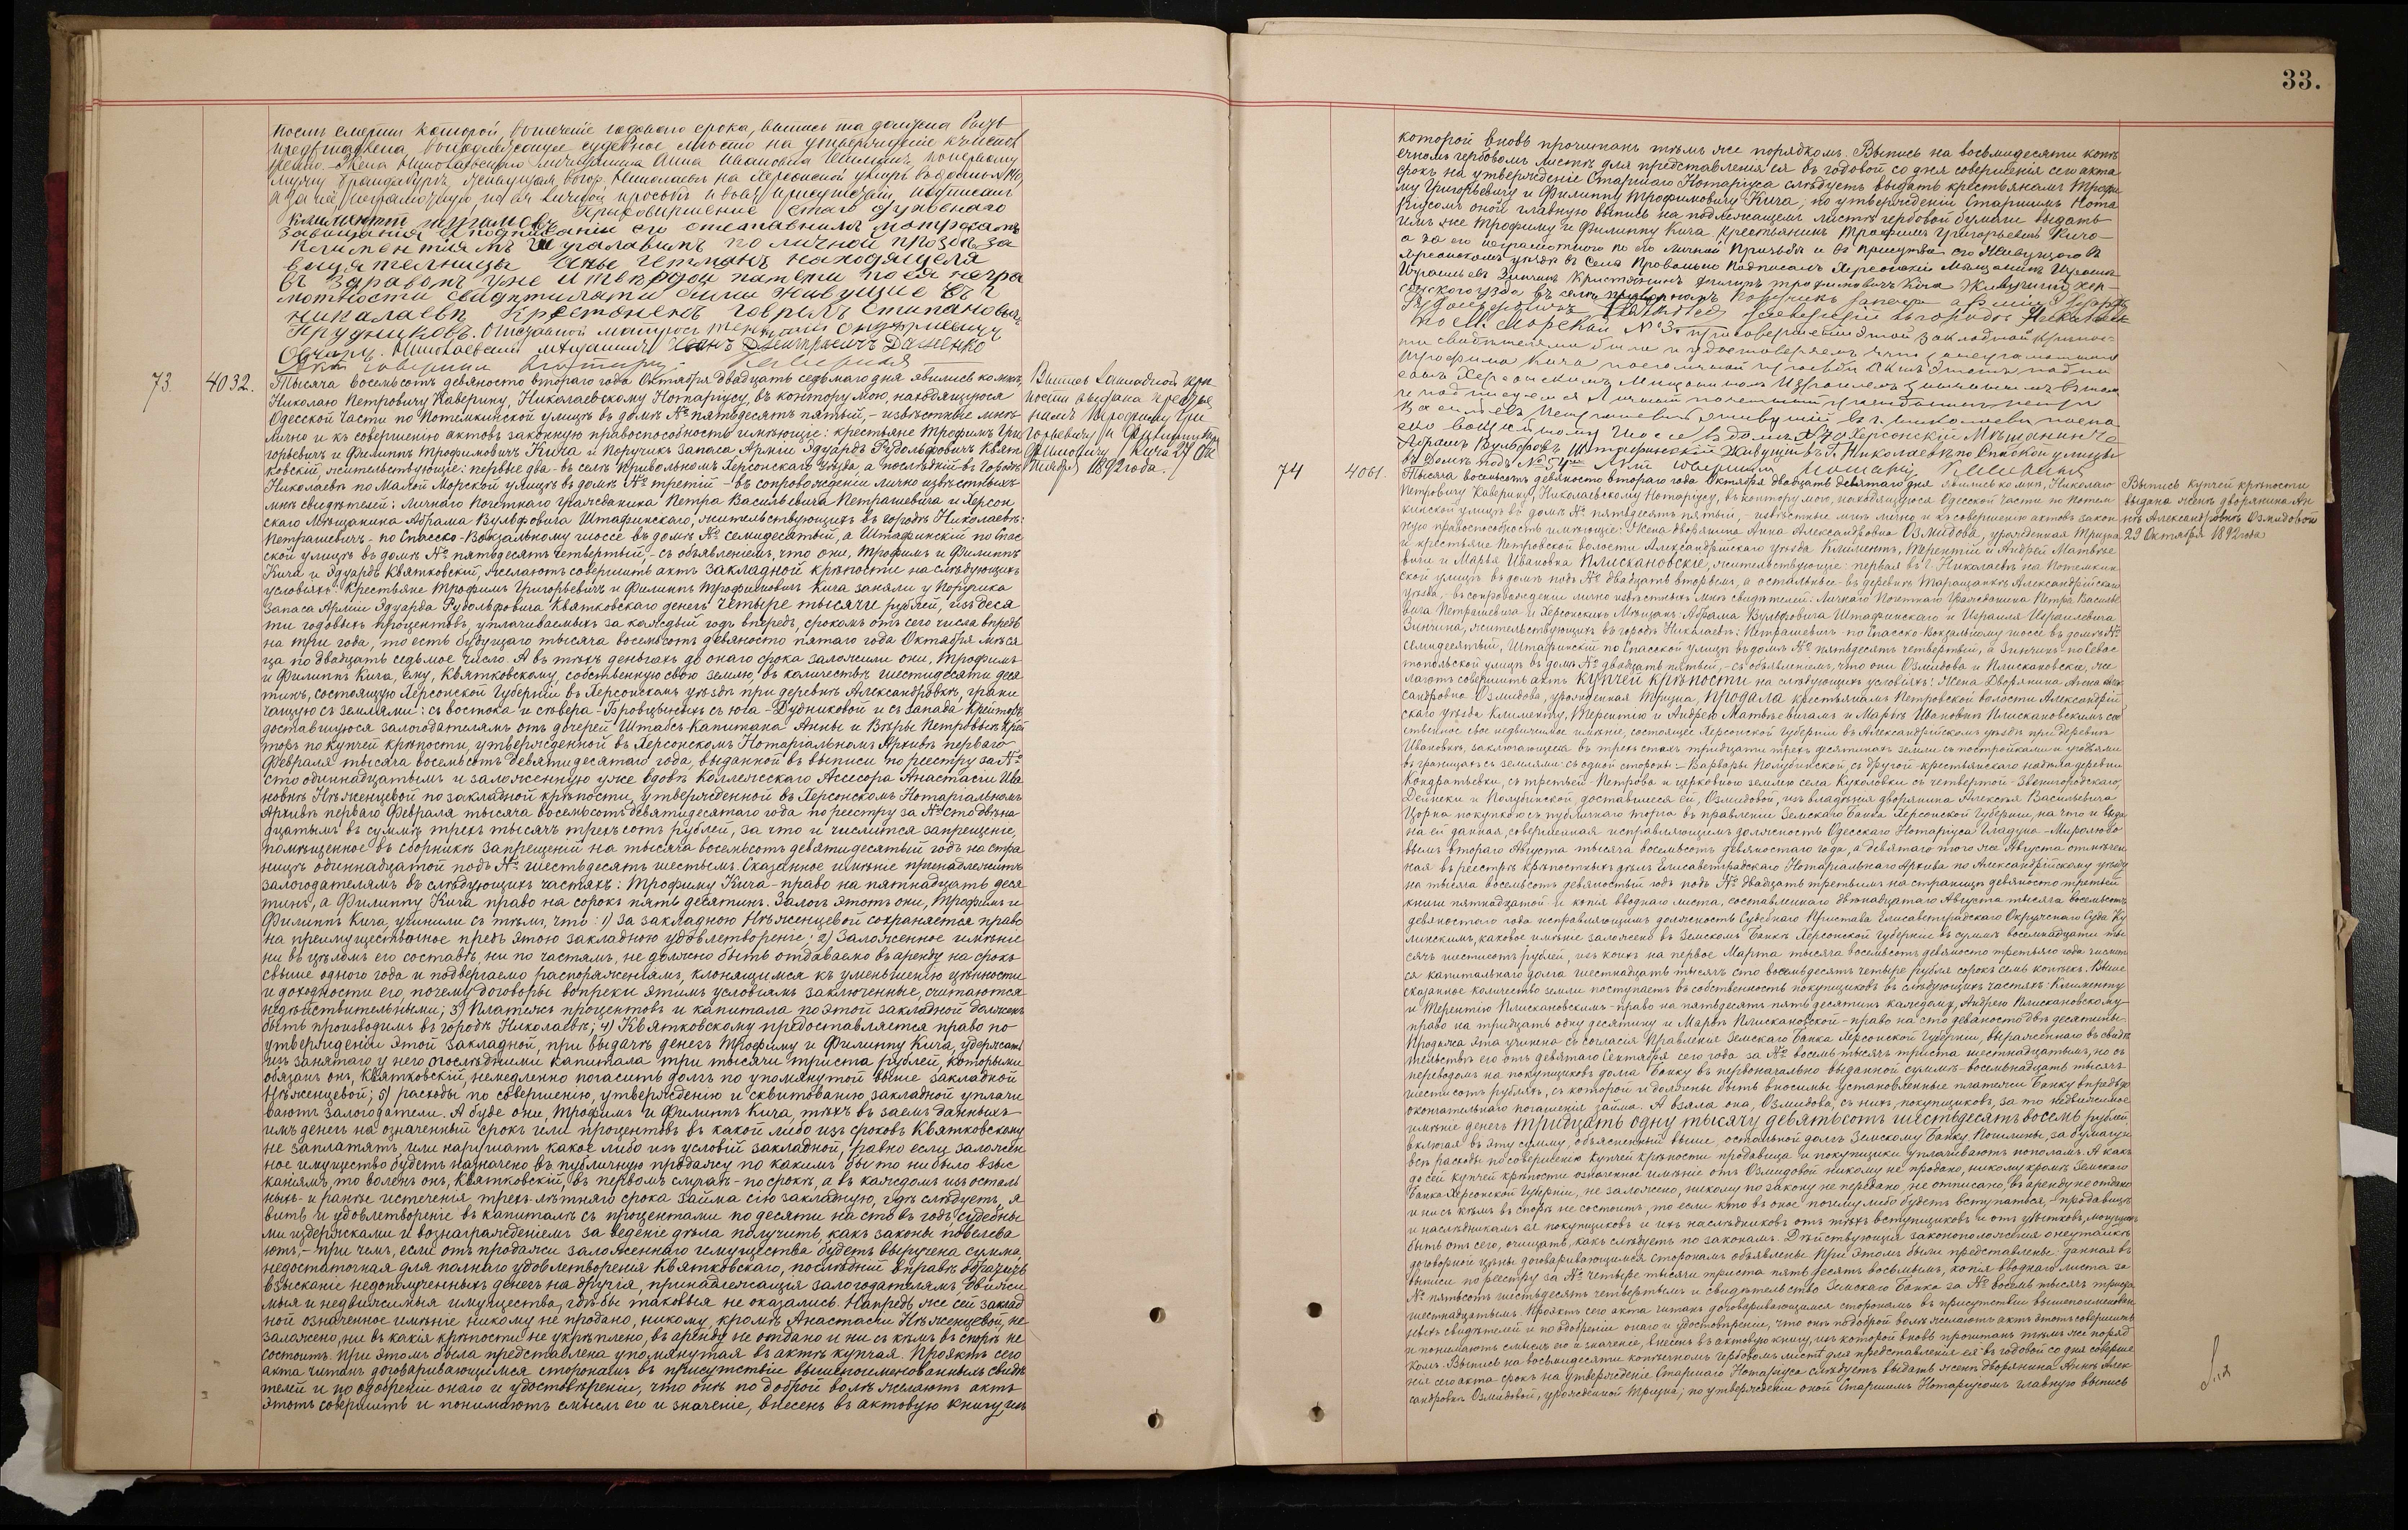 33.
после смерти которой, втечение годоваго срока, выпись та должна быть
представлена, въ подлежащее судебное место на утверждение къ испол
нению. Жена Николаевскаго мещанина Анна Ивановна по первому
мужу Бранденбургъ, живущая въ гор. Николаевѣ на Херсонской улицѣ въ домѣ №
а за нее, неграмотную, по ея личной просьбѣ
При совершение сего духовнаго
завещания и подписании его отставнымъ матросомъ
по личной прозбѣ за
вещательницы Аны находящейся
въ здравомъ уме и твердой памети по ея негра
мотности свидетилями были живущие въ г
Николаевѣ Крестоненъ Говрилъ Стипановъ
Прудниковъ. Отставной матросъ
Николаевский мѣщанинъ Иванъ Дмитриевичъ Даценко
Актъ совершилъ Нотариусъ Каверинъ
73. 4032. Тысяча восемьсотъ девяносто втораго года Октября двадцать седьмаго дня явились ко мнѣ,
Николаю Петровичу Каверину, Николаевскому Нотариусу, въ контору мою, находящуюся
Одесской части по Потемкинской улицѣ въ домѣ № пятьдесятъ пятый, – извѣстные мнѣ
лично и къ совершенію актовъ законную правоспособность имѣющіе: крестьяне Трофимъ Гри
горьевичъ и Филиппъ Трофимовичъ Кича и Поручикъ запаса Арміи Эдуардъ Рудольфовичъ Квят
ковскій, жительствующіе: первые два – въ селѣ Привольномъ Херсонскаго уѣзда, а послѣдній – въ городѣ
Николаевѣ по Малой Морской улицѣ въ домѣ № третій – въ сопровожденіи лично извѣстныхъ
мнѣ свидѣтелей: Личнаго Почетнаго Гражданина Петра Васильевича Петрашевича и Херсон
скаго Мѣщанина Абрама Вульфовича Штафинскаго, жительствующихъ въ городѣ Николаевѣ:
Петрашевичъ – по Спасско-Вокзальному шоссе въ домѣ № семидесятый, а Штафинскій по Спас
ской улицѣ въ домѣ № пятьдесятъ четвертый, – съ объявленіемъ, что они, Трофимъ и Филиппъ
Кича и Эдуардъ Квятковскій, желаютъ совершить актъ закладной крѣпости на слѣдующихъ
условіяхъ: Крестьяне Трофимъ Григорьевичъ и Филиппъ Трофимовичъ Кича заняли у Поручика
запаса Арміи Эдуарда Рудольфовича Квятковскаго денегъ четыре тысячи рублей, изъ деся
ти годовыхъ процентовъ, уплачиваемыхъ за каждый годъ впередъ, срокомъ отъ сего числа впредь
на три года, то есть будущаго тысяча восемьсотъ девяносто пятаго года Октября мѣся
ца по двадцать седьмое число. А въ тѣхъ деньгахъ до онаго срока заложили они, Трофимъ
и Филиппъ Кича, ему, Квятковскому, собственную свою землю, въ количествѣ шестидесяти деся
тинъ, состоящую Херсонской Губерніи въ Херсонскомъ уѣздѣ при деревнѣ Александровкѣ, грани
чащую съ землями: съ востока и сѣвера – Бровцыныхъ съ юга – Дудниковой и съ запада Крейторъ
доставшуюся залогодателямъ отъ дочерей Штабсъ Капитана Анны и Вѣры Петровыхъ Крей
торъ по купчей крѣпости, утвержденной въ Херсонскомъ Нотаріальномъ Архивѣ перваго
Февраля тысяча восемьсотъ девятидесятаго года, выданной въ выписи по реестру за №
сто одиннадцатымъ и заложенную уже вдовѣ Коллежскаго Ассесора Анастасіи Ива
новнѣ Нѣженцевой по закладной крѣпости, утвержденной въ Херсонскомъ Нотаріальномъ
Архивѣ перваго Февраля тысяча восемьсотъ девятидесятаго года по реестру за № сто двѣна
дцатымъ въ суммѣ трехъ тысячъ трехсотъ рублей, за что и числится запрещеніе,
помѣщенное въ сборникѣ запрещеній на тысяча восемьсотъ девятидесятый годъ на стра
ницѣ одиннадцатой подъ № шестьдесятъ шестымъ. Сказанное имѣніе принадлежитъ
залогодателямъ въ слѣдующихъ частяхъ: Трофиму Кича – право на пятнадцать деся
тинъ, а Филиппу Кича право на сорокъ пять десятинъ. Залогъ этотъ они, Трофимъ и
Филиппъ Кича, учинили съ тѣмъ, что: 1) за закладною Нѣженцевой сохраняется право
на преимущественное предъ этою закладною удовлетвореніе; 2) Заложенное имѣніе
ни въ цѣломъ его составѣ, ни по частямъ, не должно быть отдаваемо въ аренду на срокъ
свыше одного года и подвергаемо распоряженіямъ, клонящимся къ уменьшенію цѣнности
и доходности его, почему договоры вопреки этимъ условіямъ заключенные, считаются
недѣйствительными; 3) Платежъ процентовъ и капитала по этой закладной долженъ
быть производимъ въ городѣ Николаевѣ; 4) Квятковскому предоставляется право по
утвержденіи этой закладной, при выдачѣ денегъ Трофиму и Филиппу Кича, удержать
изъ занятаго у него послѣдними капитала три тысячи триста рублей, которыми
обязанъ онъ, Квятковскій, немедленно погасить долгъ по упомянутой выше закладной
Нѣженцевой; 5) расходы по совершенію, утвержденію и сквитованію закладной уплачи
ваютъ залогодатели. А буде они, Трофимъ и Филиппъ Кича, тѣхъ въ заемъ данныхъ
имъ денегъ на означенный срокъ или процентовъ въ какой либо изъ сроковъ Квятковскому
не заплатятъ, или нарушатъ какое либо изъ условій закладной, равно если заложен
ное имущество будетъ назначено въ публичную продажу по какимъ бы то ни было взыс
каніямъ, то воленъ онъ, Квятковскій, въ первомъ случаѣ – по срокѣ, а въ каждомъ изъ осталь
ныхъ – и ранѣе истеченія трехъ-лѣтняго срока займа сію закладную, гдѣ слѣдуетъ, я
вить и удовлетвореніе въ капиталѣ съ процентами по десяти на сто въ годъ, судебны
ми издержками и вознагражденіемъ за веденіе дѣла получить, какъ законы повелѣва
ютъ, – при чемъ, если отъ продажи заложеннаго имущества будетъ выручена сумма,
недостаточная для полнаго удовлетворенія Квятковскаго, послѣдній вправѣ обратить
взысканіе недополученныхъ денегъ на другія, принадлежащія залогодателямъ, движи
мыя и недвижимыя имущества, гдѣ бы таковыя не оказались. Напредь же сей заклад
ной означенное имѣніе никому не продано, никому, кромѣ Анастасіи Нѣженцевой, не
заложено, ни въ какія крѣпости не укрѣплено, въ аренду не отдано и ни съ кѣмъ въ спорѣ не
состоитъ. При этомъ была представлена упомянутая въ актѣ купчая. Проэктъ сего
акта читанъ договаривающимся сторонамъ въ присутствіе вышепоименованныхъ свидѣ
телей и по одобреніи онаго и удостовѣреніи, что онѣ по доброй волѣ желаютъ актъ
этотъ совершить и понимаютъ смыслъ его и значеніе, внесенъ въ актовую книгу, изъ
Выпись закладной крѣ
пости выдана крестья
намъ Трофиму Гри
горьевичу и Филиппу Тро
фимовичу Кича 27 Ок
тября 1892 года.
которой вновь прочитанъ тѣмъ же порядкомъ. Выпись на восьмидесяти копѣ
ечномъ гербовомъ листѣ для представленія ея въ годовой со дня совершенія сего акта
срокъ на утвержденіе Старшаго Нотаріуса слѣдуетъ выдать крестьянамъ Трофи
му Григорьевичу и Филиппу Трофимовичу Кича; по утвержденіи Старшимъ Нота
ріусомъ оной главную выпись на подлежащемъ листѣ гербовой бумаги выдать
имъ же Трофиму и Филиппу Кича. Крестьянинъ Трофимъ Григорьевичъ Кича
а за его неграмотного по его личной Прозьбѣ и въ Присутствіи его Живущаго въ
Херсонскомъ уездѣ въ Селѣ Провольно Подписалъ Херсонскій Мещанинъ Израиль
Израильевъ Зинчинъ Крестянинъ Филипъ трофимовичъ Кіча Жывущій Хер
сонского уезда въ селѣ Поручикъ запаса арміи Эдуардъ
Рудольфовичъ Квятковскій живущій въ городѣ Николаевѣ
по М. Морской № 3. при совершении этой закладной крѣпос
ти свидѣтелями были и удостоверяемъ что за неграмотнаго
Трофима Кича по его личной прозьбѣ Актъ этотъ подпи
салъ Херсонскимъ Мещаниномъ Израилемъ Зинчинымъ въ чемъ
и подписуемся Личный почетный гражданинъ Петръ
Васильевъ Петрашевичъ живущій въ г. Николаеви по Спас
ко вокзальному Шоссе въ домѣ № 70 Херсонскій Мѣщанинъ
Абрамъ Вульфовъ Штафинский Живущій въ г. Николаевѣ по Спаской улицы
въ Домѣ подъ № 54 Актъ совершилъ Нотариусъ Каверинъ
74 4061. Тысяча восемьсотъ девяносто втораго года Октября двадцать девятаго дня явились ко мнѣ, Николаю
Петровичу Каверину, Николаевскому Нотаріусу, въ контору мою, находящуюся Одесской части по Потем
кинской улицѣ въ домѣ № пятьдесятъ пятый, – извѣстные мнѣ лично и къ совершенію актовъ закон
ную правоспособность имѣющіе: Жена дворянина Анна Александровна Озмидова, урожденная Трицна
и крестьяне Петровской волости Александрійскаго уѣзда Климентъ, Терентій и Андрей Матвѣе
вичи и Марья Ивановна Плискановскіе, жительствующіе: первая въ г. Николаевѣ на Потемкин
ской улицѣ въ домѣ подъ № двадцать вторымъ, а остальные – въ деревнѣ Таращанкѣ Александрійскаго
уѣзда, – въ сопровожденіи лично извѣстныхъ мнѣ свидѣтелей: Личнаго Почетнаго Гражданина Петра Василье
вича Петрашевича и Херсонскихъ Мѣщанъ: Абрама Вульфовича Штафинскаго и Израиля Израилевича
Зинчина, жительствующихъ въ городѣ Николаевѣ: Петрашевичъ – по Спасско-Вокзальному шоссе въ домѣ №
семидесятый, Штафинскій по Спасской улицѣ въ домѣ № пятьдесятъ четвертый, а Зинчинъ по Севас
топольской улицѣ въ домѣ № двадцать пятый, – съ объявленіемъ, что они Озмидова и Плискановскіе, же
лаютъ совершить актъ купчей крѣпости на слѣдующихъ условіяхъ: Жена Дворянина Анна Алек
сандровна Озмидова, урожденная Трицна, продала крестьянамъ Петровской волости Александрій
скаго уѣзда Клименту, Терентію и Андрею Матвѣевичамъ и Марьѣ Ивановнѣ Плискановскимъ соб
ственное свое недвижимое имѣніе, состоящее Херсонской Губерніи въ Александрійскомъ уѣздѣ при деревнѣ
Ивановкѣ, заключающееся въ трехъ стахъ тридцати трехъ десятинахъ земли съ постройками и угодьями
въ границахъ съ землями: съ одной стороны – Варвары Полубинской, съ другой – крестьянскаго надѣла деревни
Кондратьевки, съ третьей – Петрова и церковною землею села Куколовки съ четвертой – Звенигородскаго,
Дейнеки и Полубинской, доставшееся ей, Озмидовой, изъ владѣнія дворянина Алексѣя Васильевича
Цорна покупкою съ публичнаго торга въ правленіи Земскаго Банка Херсонской Губерніи, на что и выда
на ей данная, совершенная исправляющимъ должность Одесскаго Нотаріуса Гладуна-Миролюбо
вымъ втораго Августа тысяча восемьсотъ девяностаго года, а девятаго того же Августа отмѣчен
ная въ реестрѣ крѣпостныхъ дѣлъ Елисаветградскаго Нотаріальнаго Архива по Александрійскому уѣзду
на тысяча восемьсотъ девяностый годъ подъ № двадцать третьимъ на страницѣ девяносто третьей
книги пятнадцатой и копія вводнаго листа, составленнаго двѣнадцатаго Августа тысяча восемьсотъ
девяностаго года исправляющимъ должность Судебнаго Пристава Елисаветградскаго Окружнаго Суда Ку
линскимъ, каковое имѣніе заложено въ Земскомъ Банкѣ Херсонской Губерніи въ суммѣ восемнадцати ты
сячъ шестисотъ рублей, изъ коихъ на первое Марта тысяча восемьсотъ девяносто третьяго года числит
ся капитальнаго долга шестнадцать тысячъ сто восемьдесятъ четыре рубля сорокъ семь копѣекъ. Выше
сказанное количество земли поступаетъ въ собственность покупщиковъ въ слѣдующихъ частяхъ: Клименту
и Терентію Плискановскимъ – право на пятьдесятъ пять десятинъ каждому, Андрею Плискановскому
право на тридцать одну десятину и Марьѣ Плискановской – право на сто девяносто двѣ десятины.
Продажа эта учинена съ согласія Правленія Земскаго Банка Херсонской Губерніи, выраженнаго въ свидѣ
тельствѣ его отъ девятаго Сентября сего года за № восемь тысячъ триста шестнадцатымъ, но съ
переводомъ на покупщиковъ долга Банку въ первоначально выданной суммѣ – восемьнадцать тысячъ
шестисотъ рубляхъ, съ которой и должны быть вносимы установленные платежи Банку впредь до
окончательнаго погашенія займа. А взяла она, Озмидова, съ нихъ, покупщиковъ, за то недвижимое
имѣніе денегъ тридцать одну тысячу девятьсотъ шестьдесятъ восемь рублей
включая въ эту сумму, объясненный выше, остальной долгъ Земскому Банку. Пошлины, за бумагу и
всѣ расходы по совершенію купчей крѣпости продавица и покупщики уплачиваютъ пополамъ. А какъ
до сей купчей крѣпости означенное имѣніе отъ Озмидовой никому не продано, никому кромѣ Земскаго
Банка Херсонской Губерніи, не заложено, никому по закону не передано, не отписано, въ аренду не отдано
и ни съ кѣмъ въ спорѣ не состоитъ, то если кто въ оное почему либо будетъ вступаться, – продавицѣ
и наслѣдникамъ ея покупщиковъ и ихъ наслѣдниковъ отъ тѣхъ вступщиковъ и отъ убытковъ, могущихъ
быть отъ сего, очищать, какъ слѣдуетъ по законамъ. Дѣйствующія законоположенія о неутайкѣ
договорной цѣны договаривающимся сторонамъ объявлены. При этомъ были представлены: данная въ
выписи по реестру за № четыре тысячи триста пятьдесятъ восьмымъ, копія вводнаго листа за
№ пятьсотъ шестьдесятъ четвертымъ и свидѣтельство Земскаго Банка за № восемь тысячъ триста
шестнадцатымъ. Проэктъ сего акта читанъ договаривающимся сторонамъ въ присутствіи вышепоименован
ныхъ свидѣтелей и по одобреніи онаго и удостовѣреніи, что онѣ по доброй волѣ желаютъ актъ этотъ совершить
и понимаютъ смыслъ его и значеніе, внесенъ въ актовую книгу, изъ которой вновь прочитанъ тѣмъ же поряд
комъ. Выпись на восьмидесяти копѣечномъ гербовомъ листѣ для представленія ея въ годовой со дня соверше
нія сего акта срокъ на утвержденіе Старшаго Нотаріуса слѣдуетъ выдать женѣ дворянина Аннѣ Алек
сандровнѣ Озмидовой, урожденной Трицна; по утвержденіи оной Старшимъ Нотаріусомъ главную выпись
Выпись купчей крѣпости
выдана женѣ дворянина Ан
нѣ Александровнѣ Озмидовой
29 Октября 1892 года